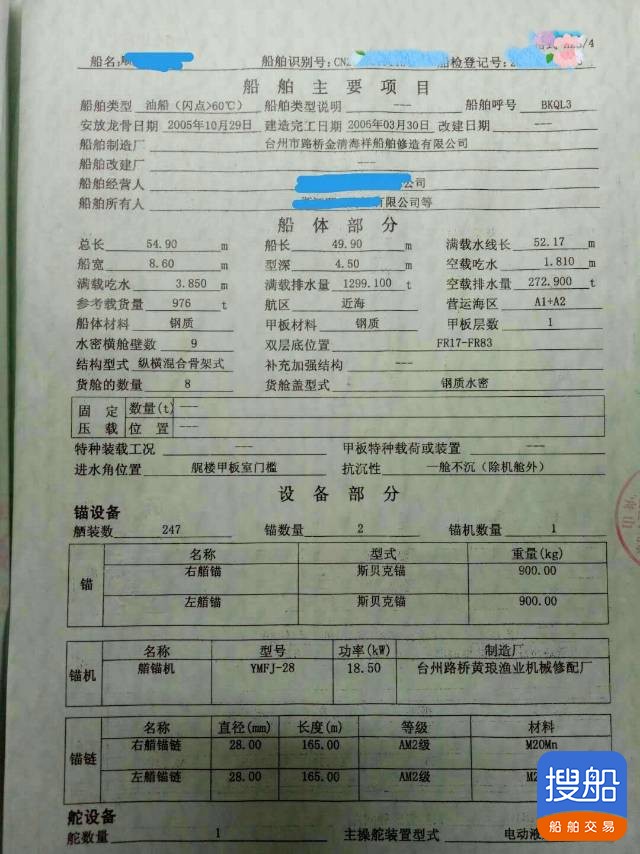 船名: 船舶识别号: CN2 船检登记号:
船舶主要项目
船舶类型 油船(闪点>60℃) 船舶类型说明 --- 船舶呼号 BKQL3
安放龙骨日期 2005年10月29日 建造完工日期 2006年03月30日 改建日期 ---
船舶制造厂 台州市路桥金清海祥船舶修造有限公司
船舶改建厂 ---
船舶经营人 公司
船舶所有人 有限公司等
船体部分
总长 54.90 m 船长 49.90 m 满载水线长 52.17 m
船宽 8.60 m 型深 4.50 m 空载吃水 1.810 m
满载吃水 3.850 m 满载排水量 1299.100 t 空载排水量 272.900 t
参考载货量 976 t 航区 近海 营运海区 A1+A2
船体材料 钢质 甲板材料 钢质 甲板层数 1
水密横舱壁数 9 双层底位置 FR17-FR83
结构型式 纵横混合骨架式 补充加强结构 ---
货舱的数量 8 货舱盖型式 钢质水密
固定 数量(t) ---
压载 位置 ---
特种装载工况 --- 甲板特种载荷或装置 ---
进水角位置 艉楼甲板室门槛 抗沉性 一舱不沉(除机舱外)
设备部分
锚设备
舾装数 247 锚数量 2 锚机数量 1
名称 型式 重量(kg)
锚 右艏锚 斯贝克锚 900.00
左艏锚 斯贝克锚 900.00
名称 型号 功率(kW) 制造厂
锚机 艏锚机 YMFJ-28 18.50 台州路桥黄琅渔业机械修配厂
名称 直径(mm) 长度(m) 等级 材料
锚链 右艏锚链 28.00 165.00 AM2级 M20Mn
左艏锚链 28.00 165.00 AM2级
舵设备
舵数量 1 主操舵装置型式 电动液
搜船
船舶交易